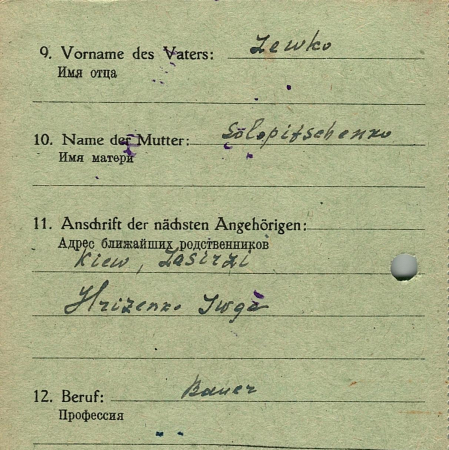 9. Vorname des Vaters: Lewko
Имя отца
10. Name der Mutter: Solopitschenko
Имя матери
11. Anschrift der nächsten Angehörigen:
Адрес ближайших родственников
Kiew,
Hrizenko Iwga
12. Beruf: Bauer
Профессия